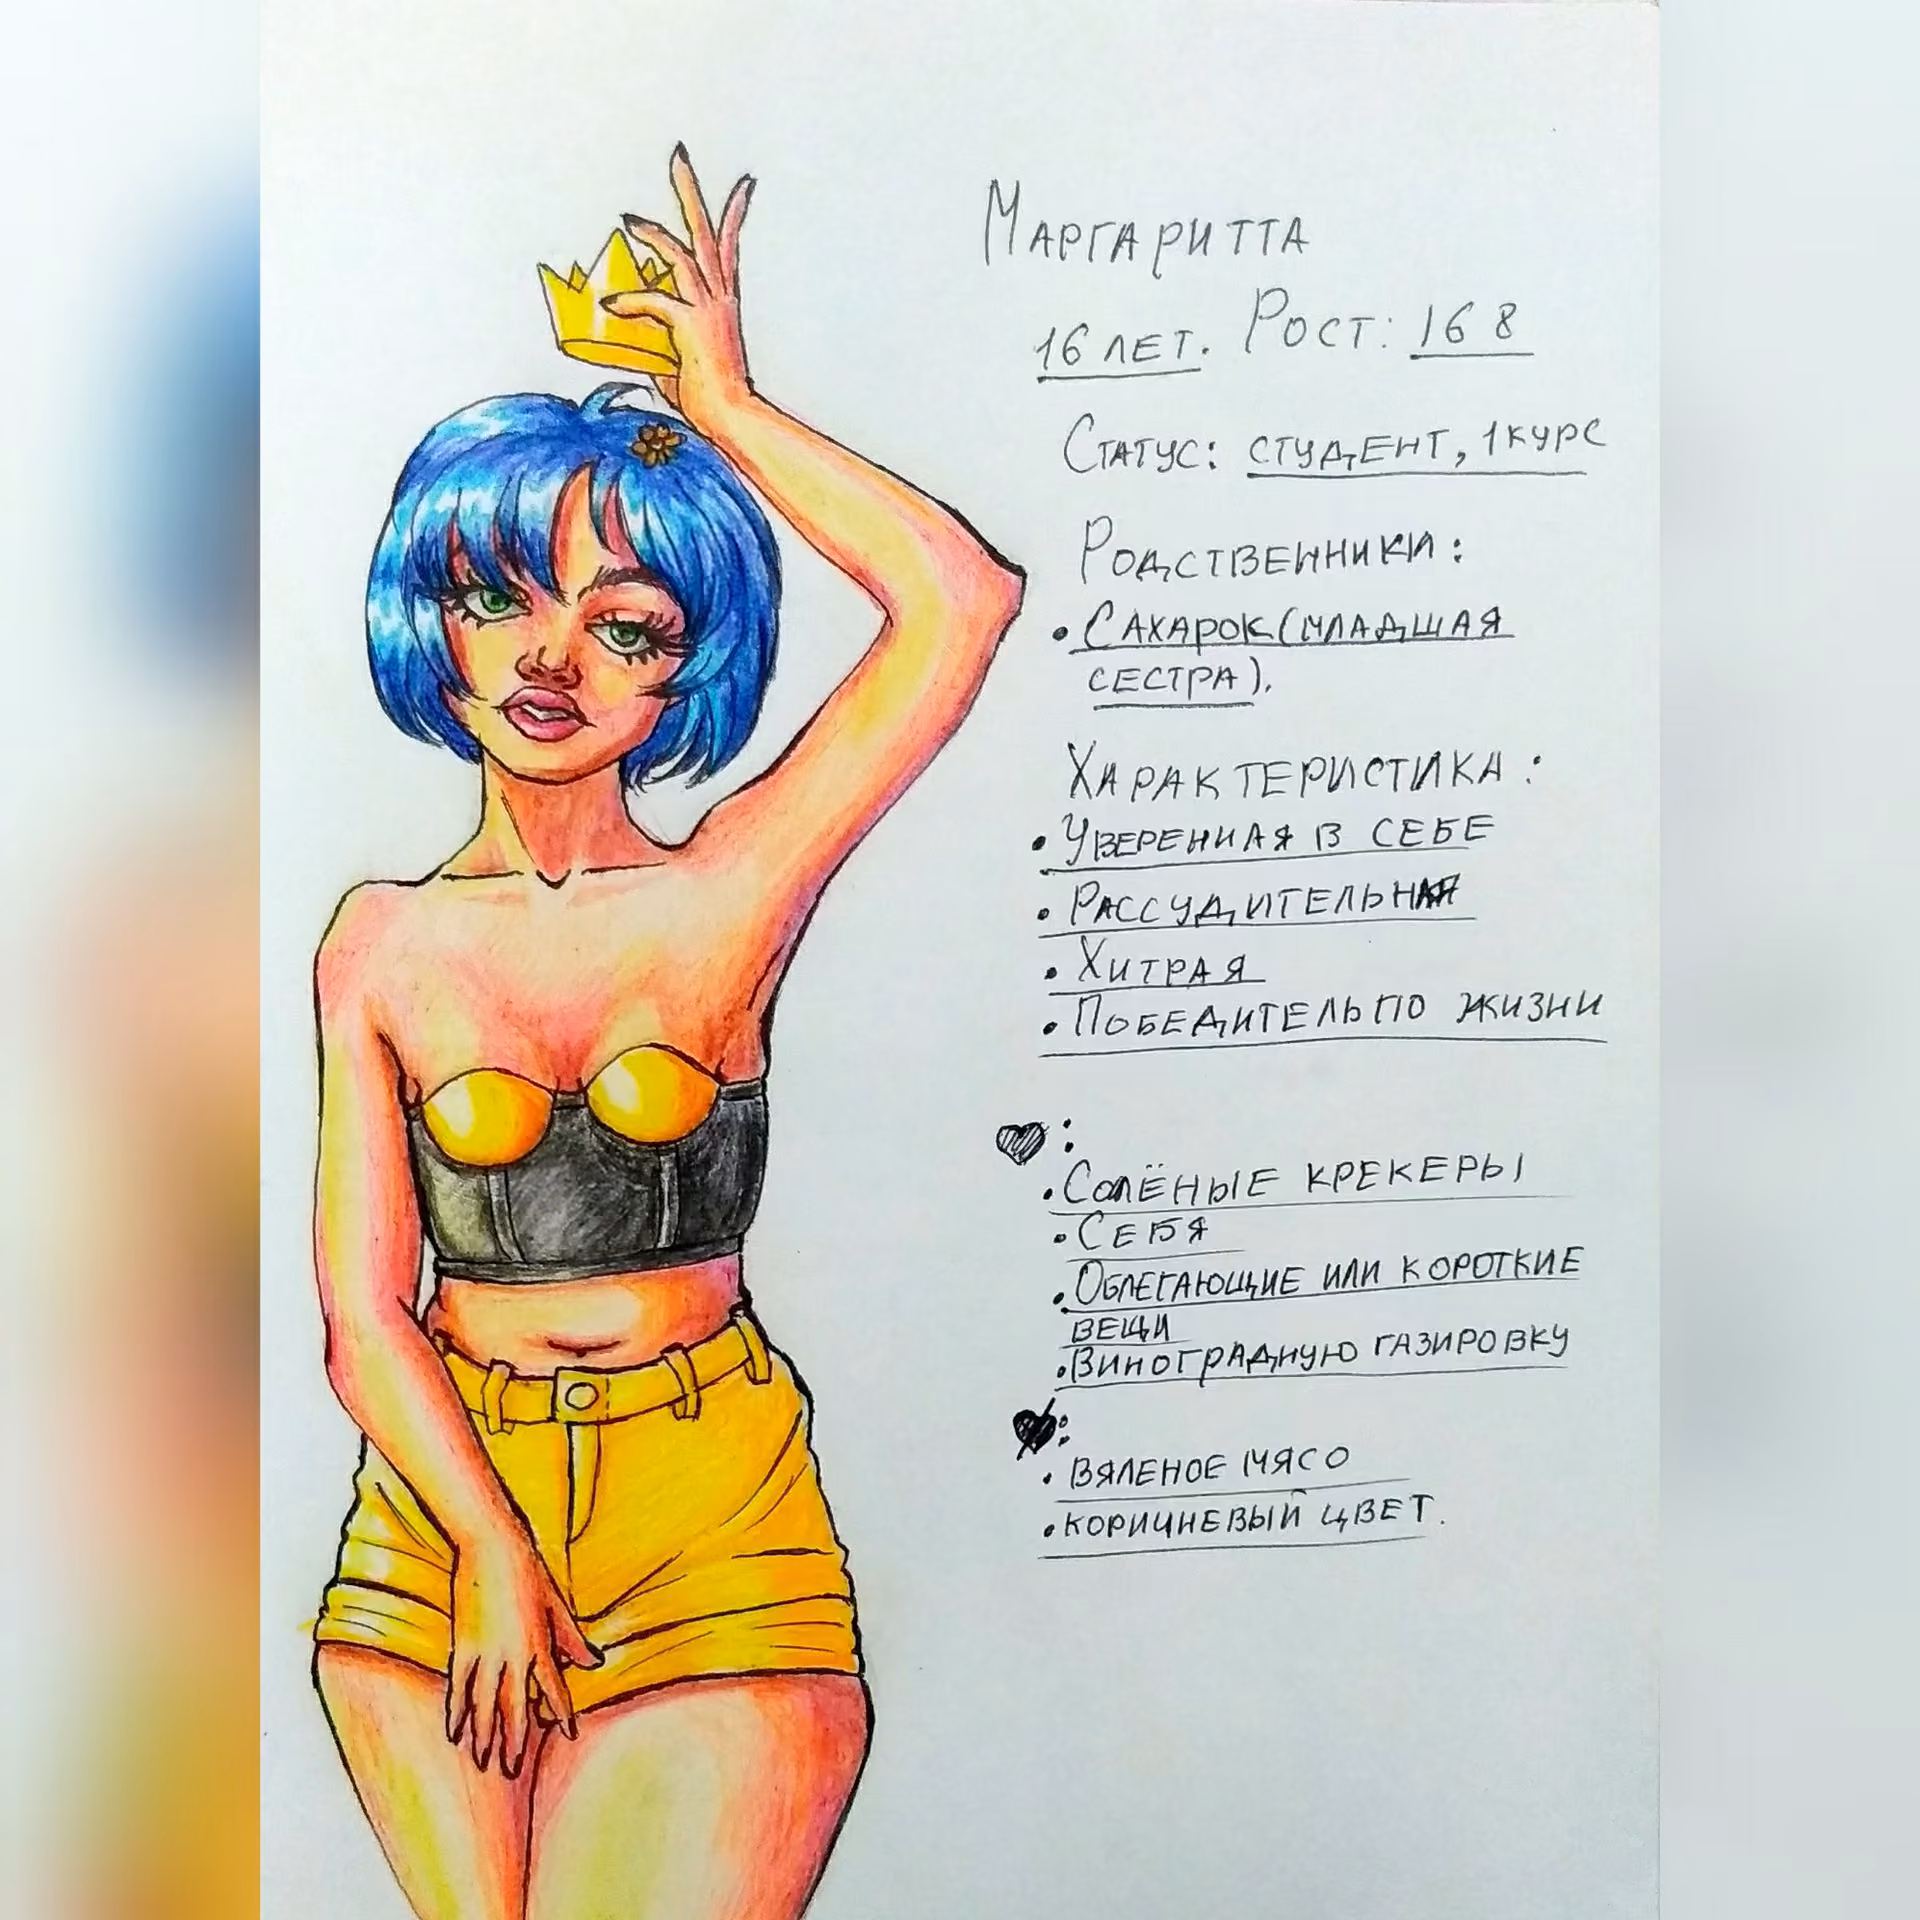 Маргаритта
16 лет. Рост: 168
Статус: студент, 1 курс
Родственники:
• Сахарок (младшая
сестра).
Характеристика:
• Уверенная в себе
• Рассудительная
• Хитрая
• Победитель по жизни
:
• Солёные крекеры
• Себя
• Облегающие или короткие
вещи
• Виноградную газировку
:
• вяленое мясо
• коричневый цвет.